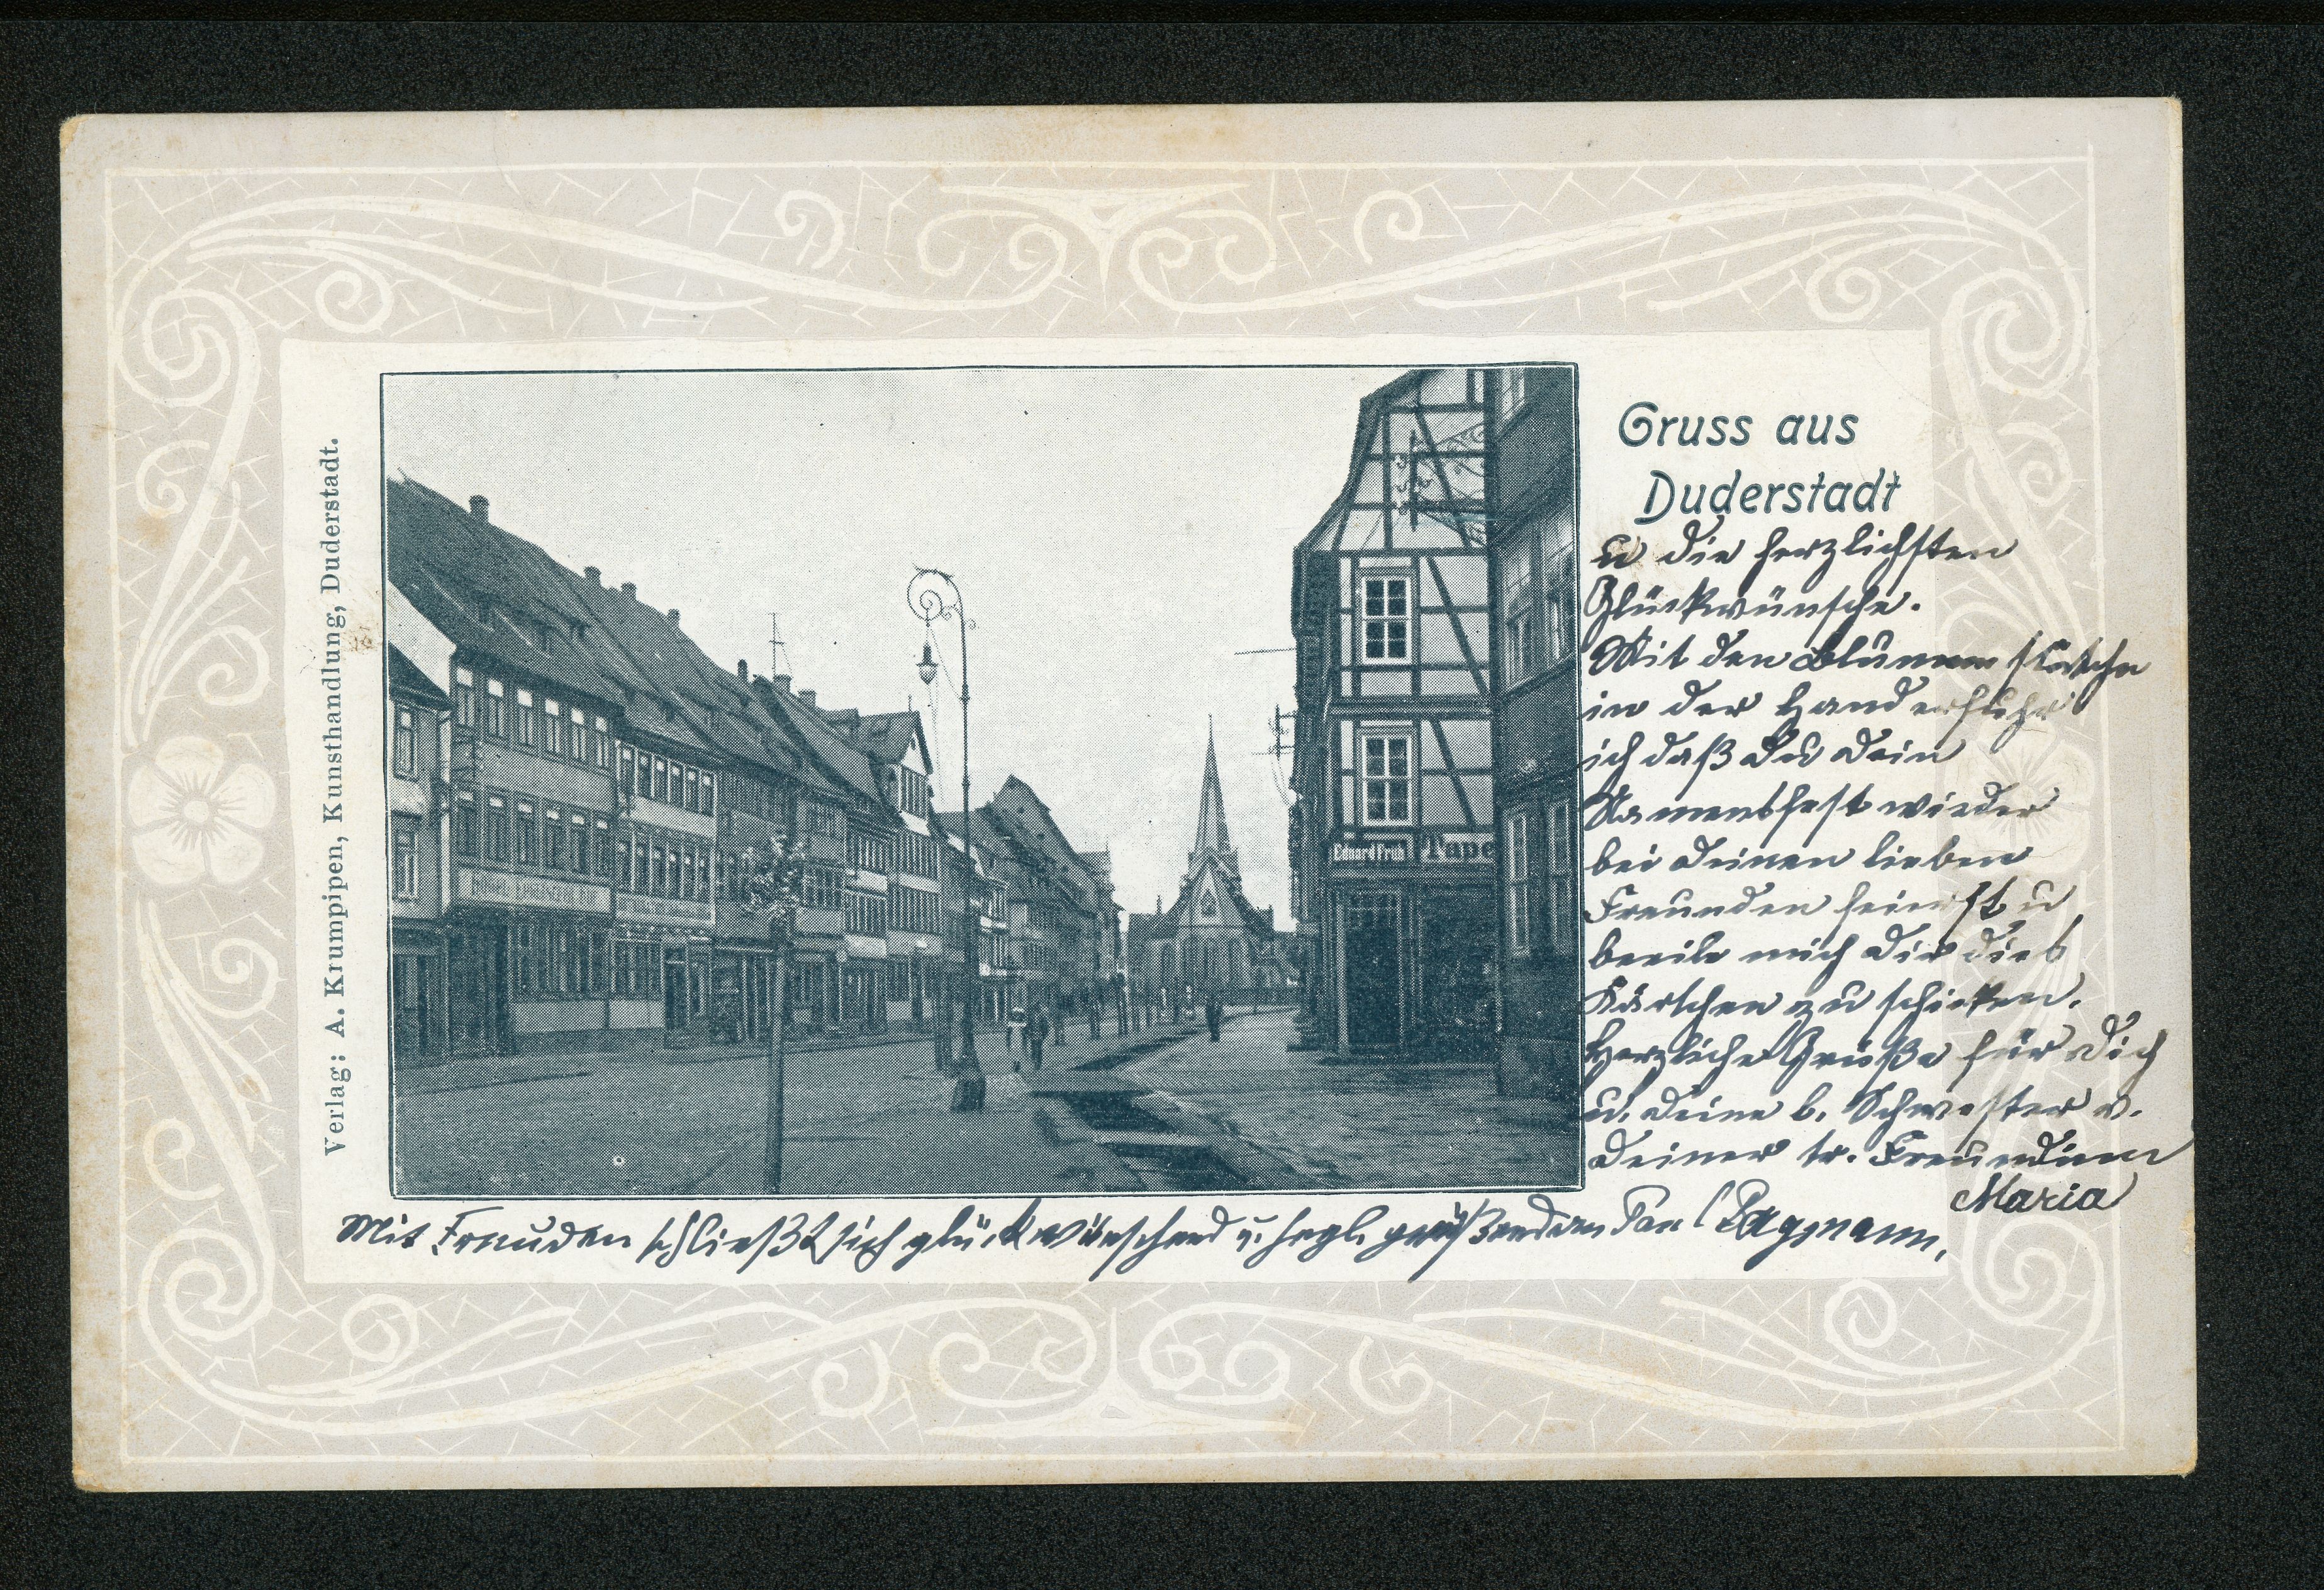 Verlag: A. Krumpipen, Kunsthandlung, Duderstadt.
Gruss aus
Duderstadt
u die herzlichsten
Glückwünsche.
Mit den Blumen
in der Hand erfuhr
ich daß du dein
Namensfest wieder
bei deinen lieben
Freunden feierst u
beeile mich dir dies
Kärtchen zu schicken.
Herzliche Grüße für dich
u. deine l. Schwester v.
deiner tr. Freundin
Maria
Mit Freuden schließt sich glückwünschend u. herzl. grüßend an Paul
Eduard Früh
Tape
Hotel